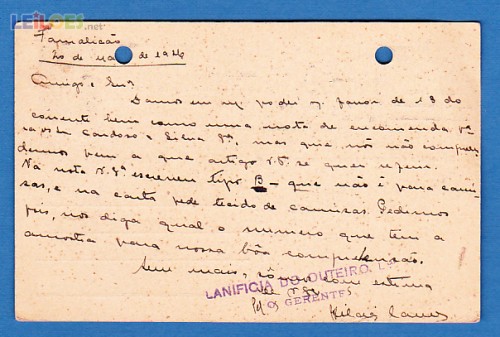 LEILOES.net
Famalicão
20 de de 1946
Amigo e Snr
Damos em poder favor de 13 do
corrente bem como uma nota de encomenda
Cardoso & mas que nós não compreen
demos bem a que artigo V.S. se quer
Na nota V.Sª escrevem tipo B - que não é para cami
sas, e na carta pede tecido de camisas. Pedimos
pois, nos diga qual o numero que tem a
amostra para nossa bôa compreensão.
Sem mais, com estima
LANIFICIA DO OUTEIRO, L.
de V.S.
OS GERENTES